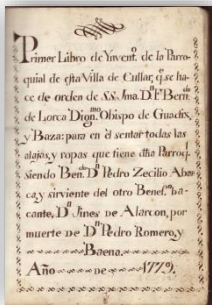 Primer Libro de Ynvent.º de la Parro-
quial de esta Villa de Cullar, q.e se ha-
ce de orden de S.S. Ima. D.n F. Bern.do
de Lorca Dign.mo Obispo de Guadix,
y Baza: para en el sentar todas las
alajas, y ropas que tiene dha Parroq.l
siendo Ben.do D.n Pedro Zecilio Abar
ca, y sirviente del otro Benef.o ba-
cante, D.n Jines de Alarcon, por
muerte de D.n Pedro Romero, y
Baena.
Año de 1779.